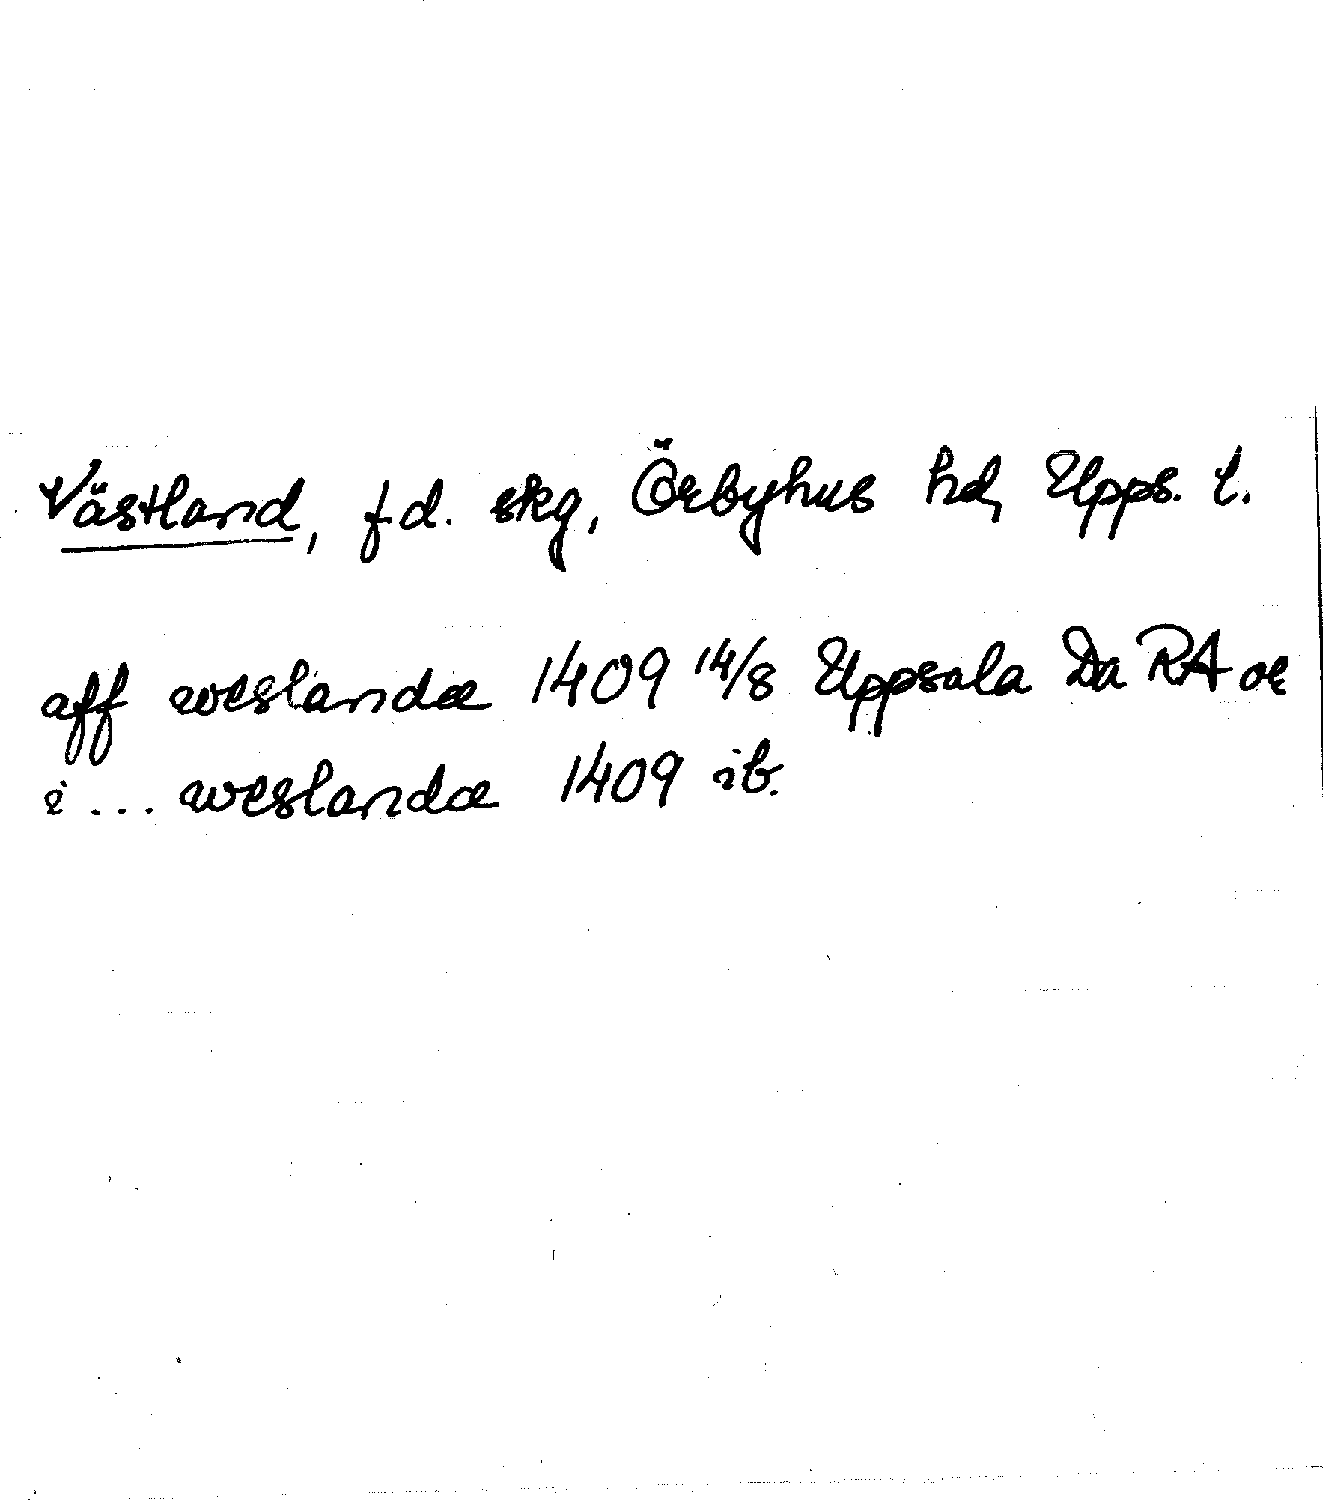 Västland, f.d. skg, Örbyhus hd, Upps. l.
aff weslandæ 1409 14/8 Uppsala Da RA or
i ... weslandæ 1409 ib.